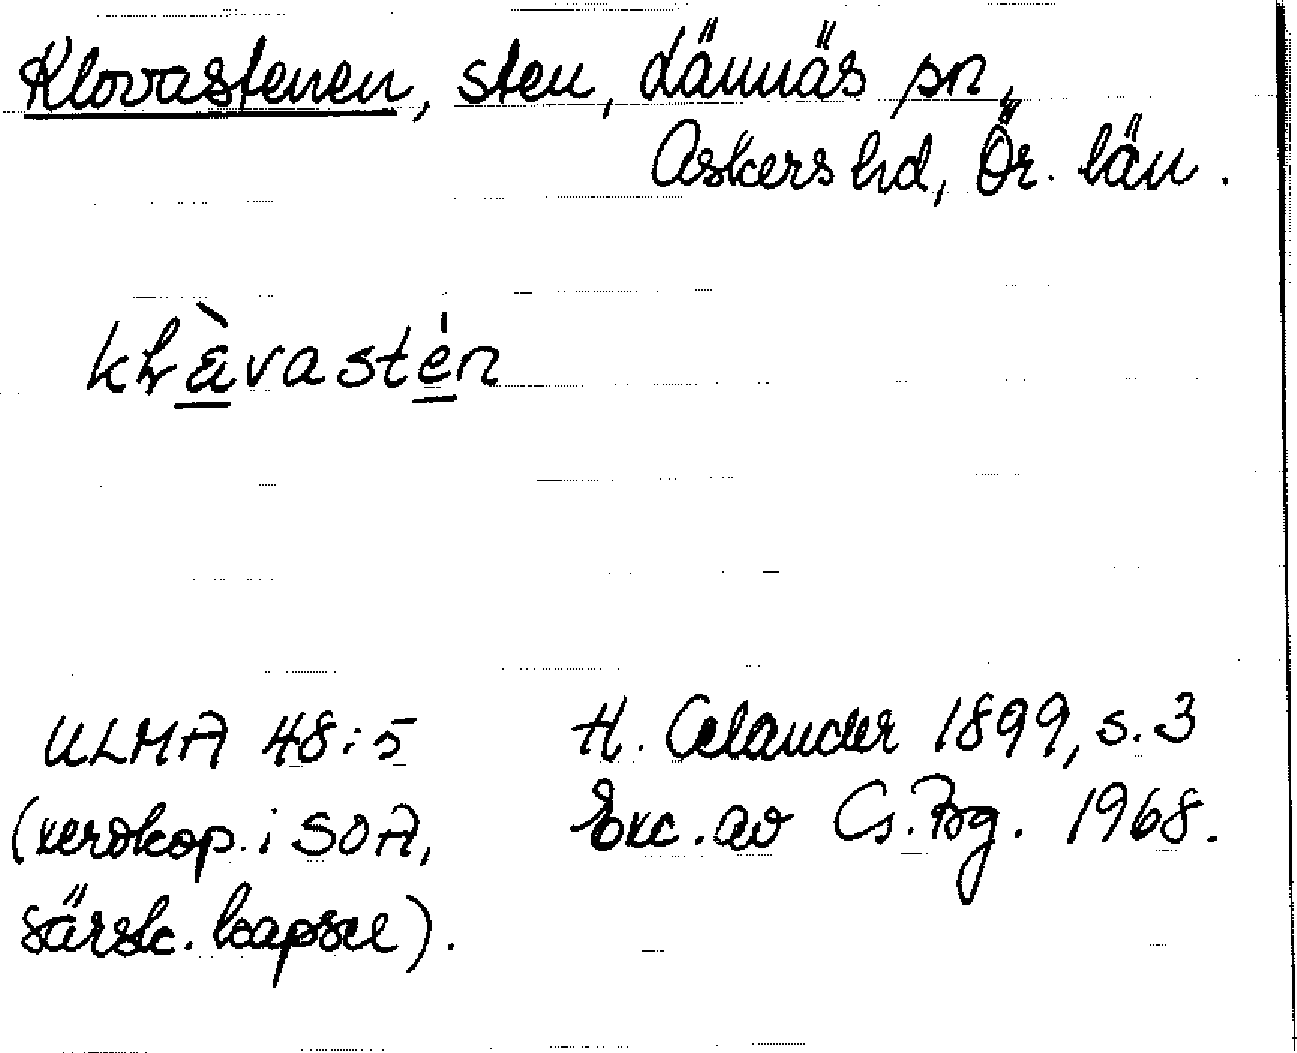 Klovastenen, sten, Lännäs sn,
Askers hd, Ör. län.
ULMA 48:5
(xerokop. i SOA,
särsk. kapsel).
H. Celander 1899, s. 3
Exc. av G. Bg. 1968.